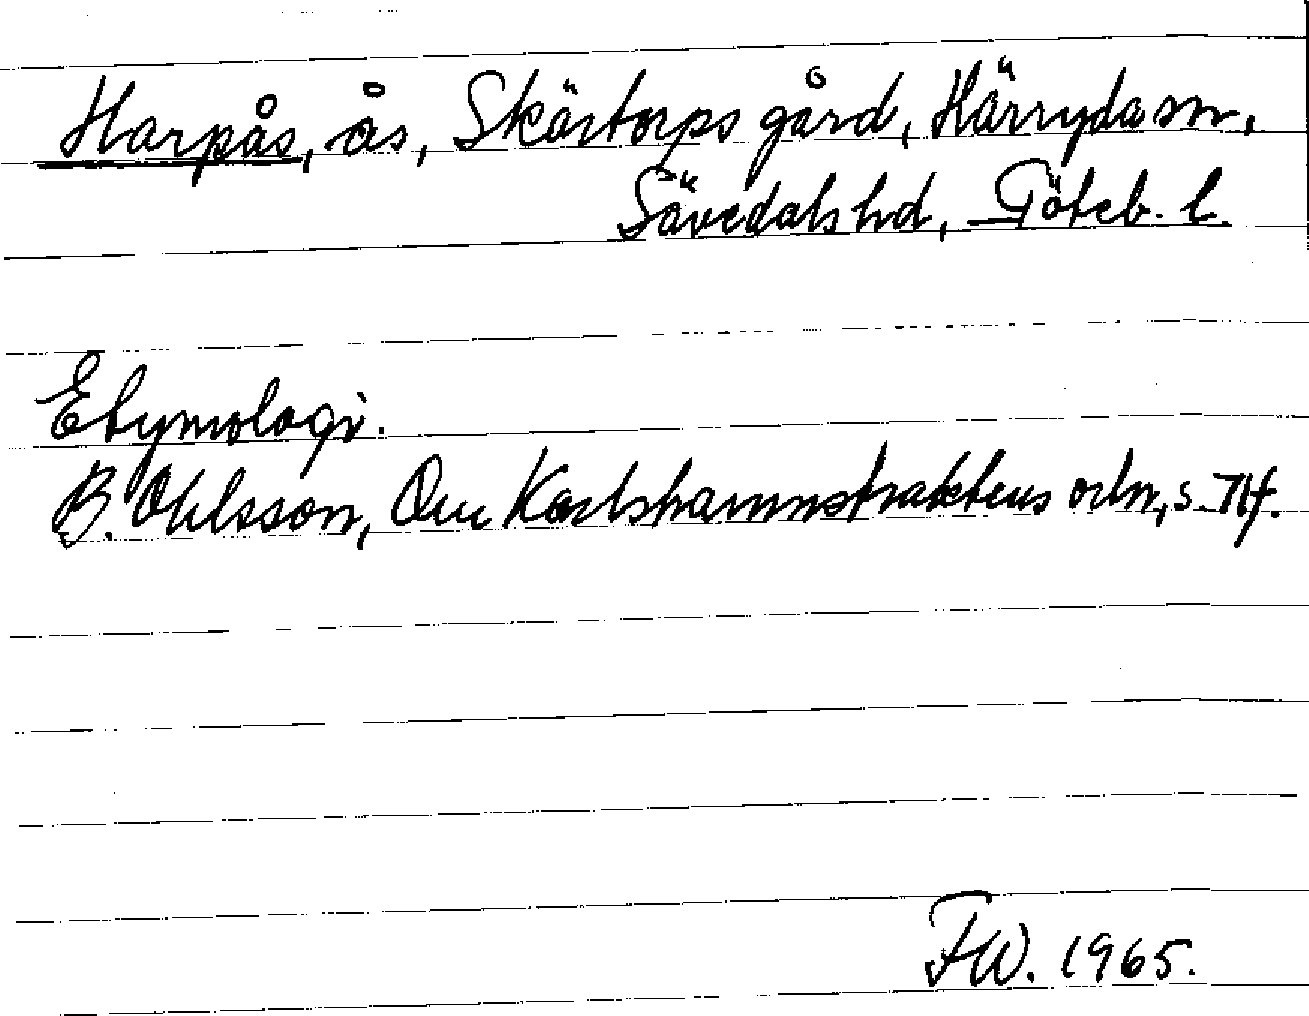 Harpås, ås, Skårtorps gård, Härryda sn,
Sävedals hd, Göteb. l.
Etymologi.
B. Ohlsson, Om Karlshamnstraktens ortn, s.
FW. 1965.